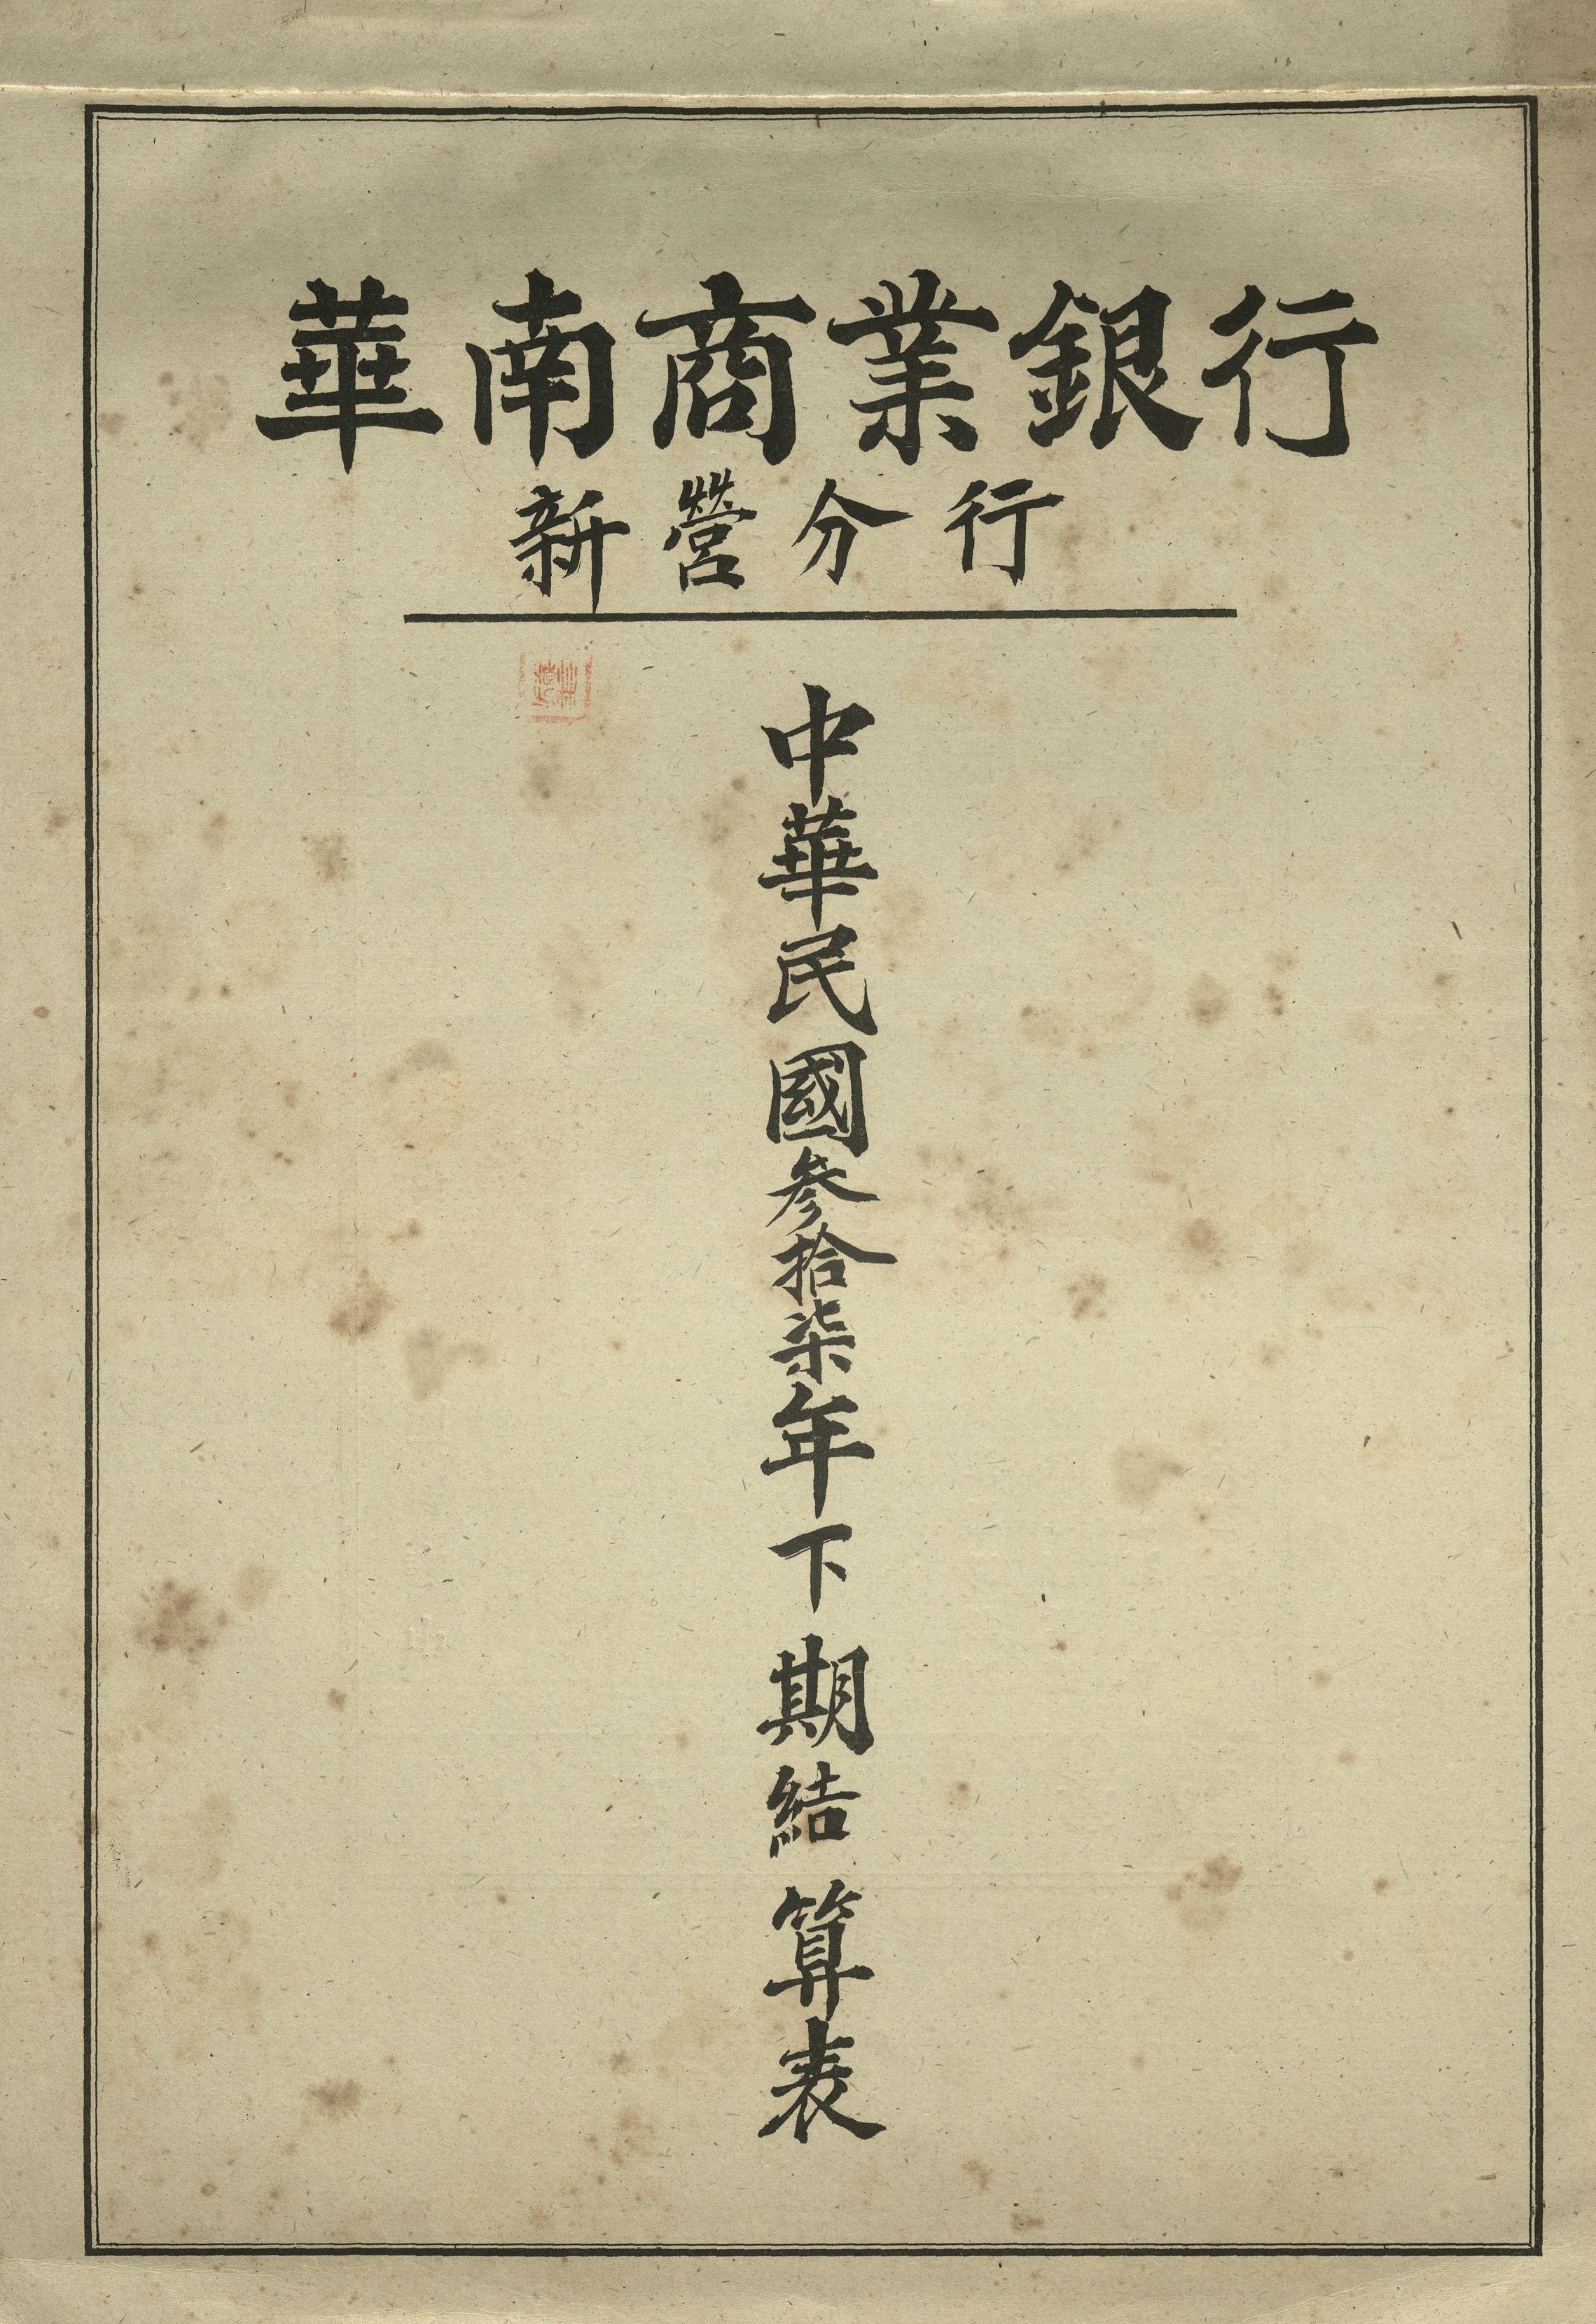 華南商業銀行
新營分行
中華民國參拾柒年下期結算表